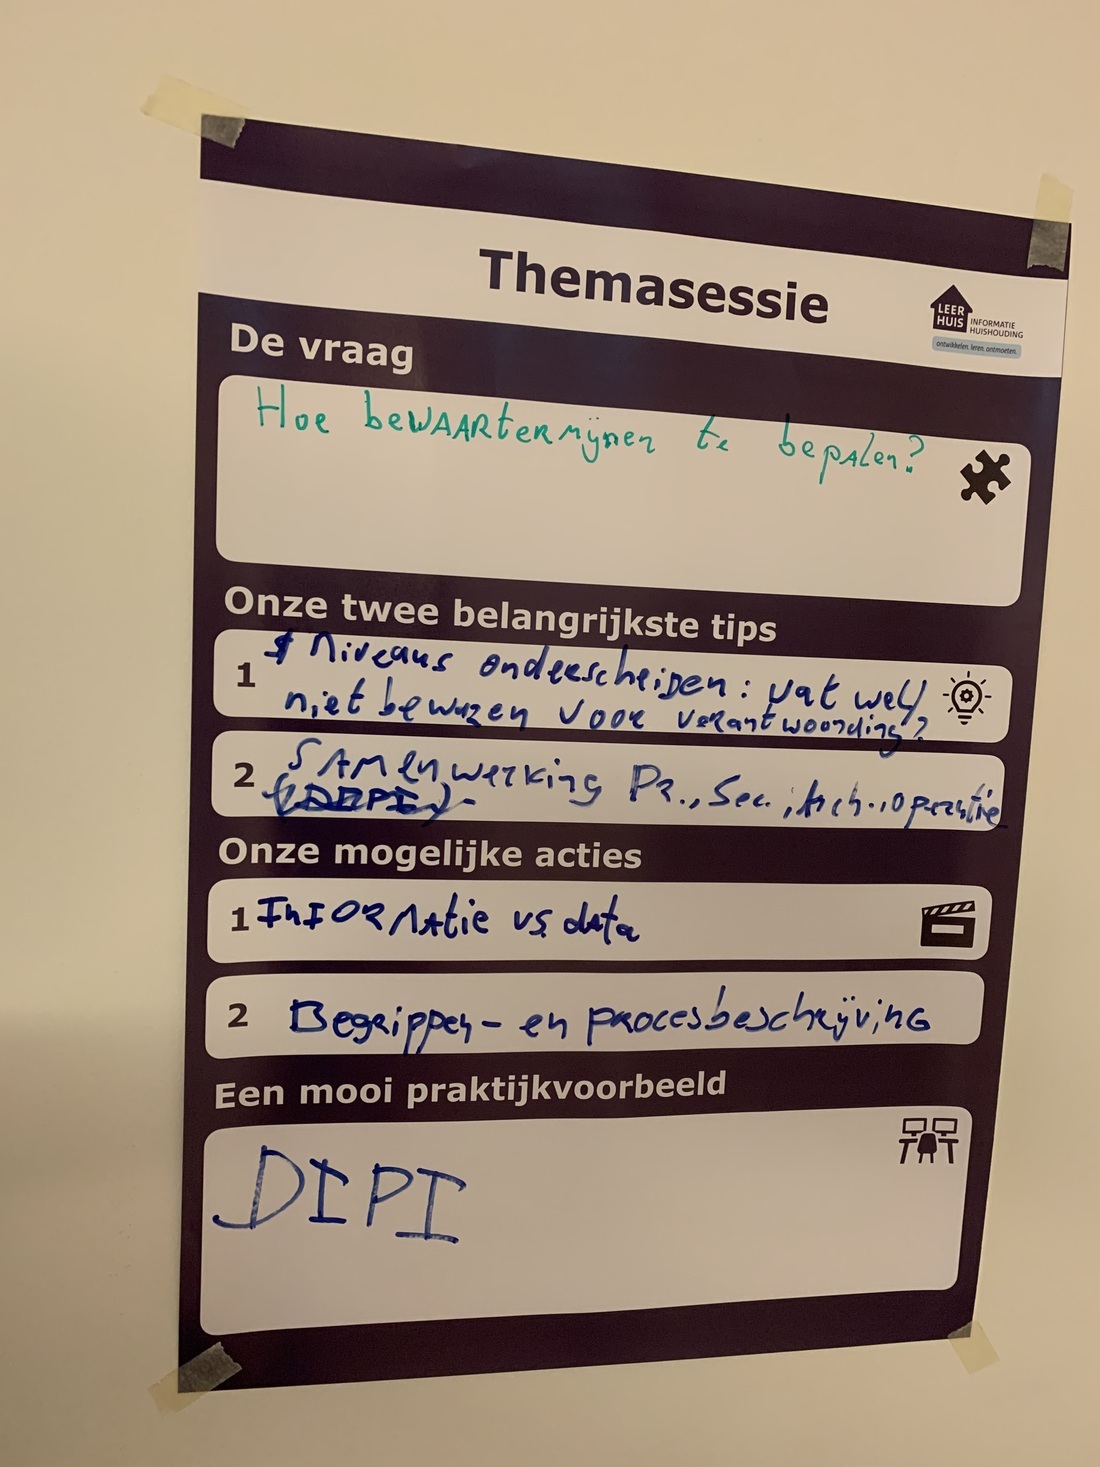 Themasessie
LEER
HUIS
INFORMATIE
HUISHOUDING
ontwikkelen. leren. ontmoeten.
De vraag
Hoe beWAARtermijnen te bepalen?
Onze twee belangrijkste tips
1
Niveaus onderscheiden: wat wel/
niet bewaren voor verantwoording?
2
SAMenwerking Pr., Sec., Arch., operatie
(DIPI)
Onze mogelijke acties
1 InFORMAtie vs. data
2 Begrippen- en procesbeschrijving
Een mooi praktijkvoorbeeld
DIPI